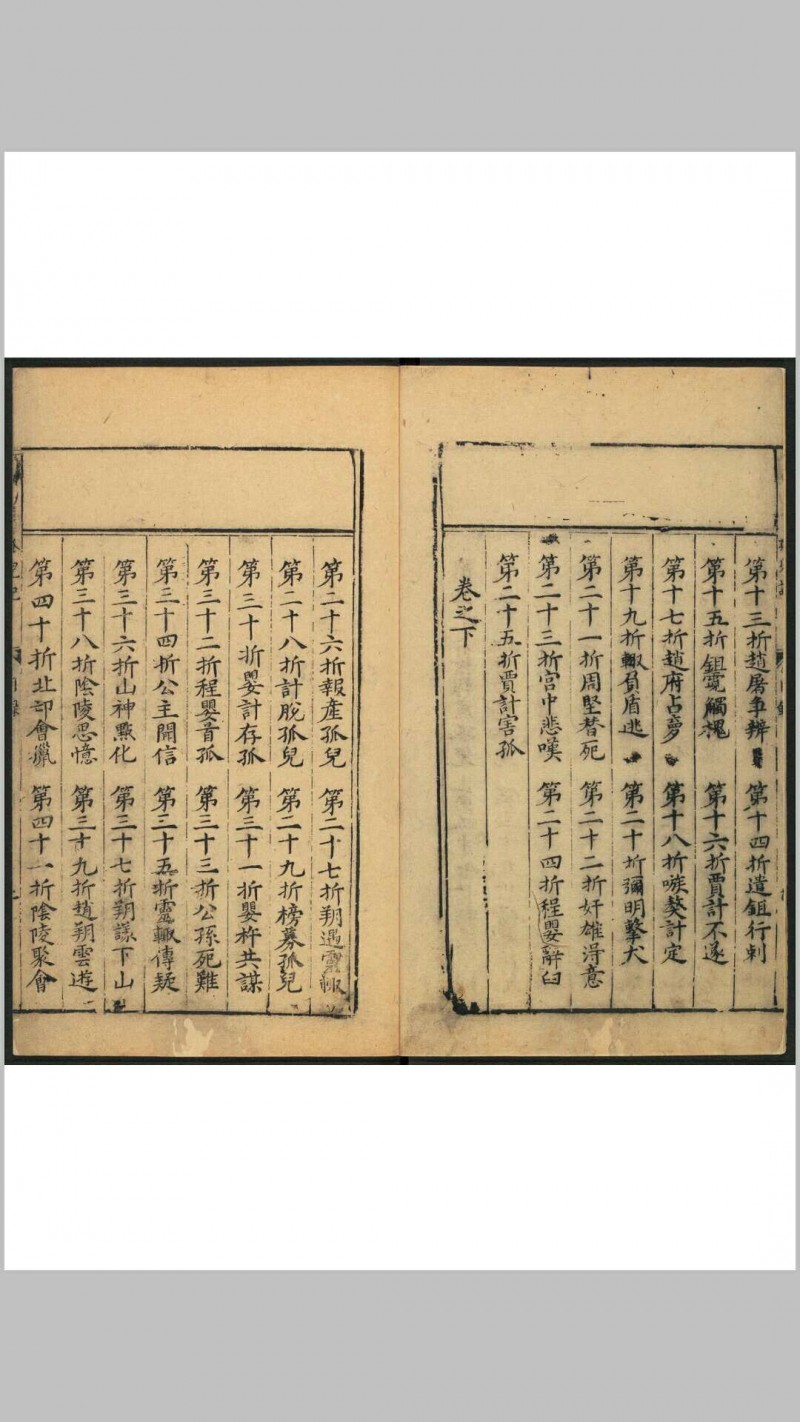 第十三折趙屠争辨 第十四折遣鉏行刺
第十五折鉏霓觸槐 第十六折賈計不遂
第十七折趙府占夢 第十八折嗾獒計定
第十九折輙負盾逃 第二十折彌明擊犬
第二十一折周堅替死 第二十二折奸雄淂意
第二十三折宫中悲嘆 第二十四折程嬰辭臼
第二十五折賈計害孤
卷之下
第二十六折報產孤兒 第二十七折朔遇靈輙
第二十八折計脫孤兒 第二十九折榜募孤兒
第三十折嬰計存孤 第三十一折嬰杵共謀
第三十二折程嬰首孤 第三十三折公孫死難
第三十四折公主開信 第三十五折靈輙傳疑
第三十六折山神㸃化 第三十七折朔謀下山
第三十八折陰陵思憶 第三十九折趙朔雲遊
第四十折北邙會獵 第四十一折陰陵聚會